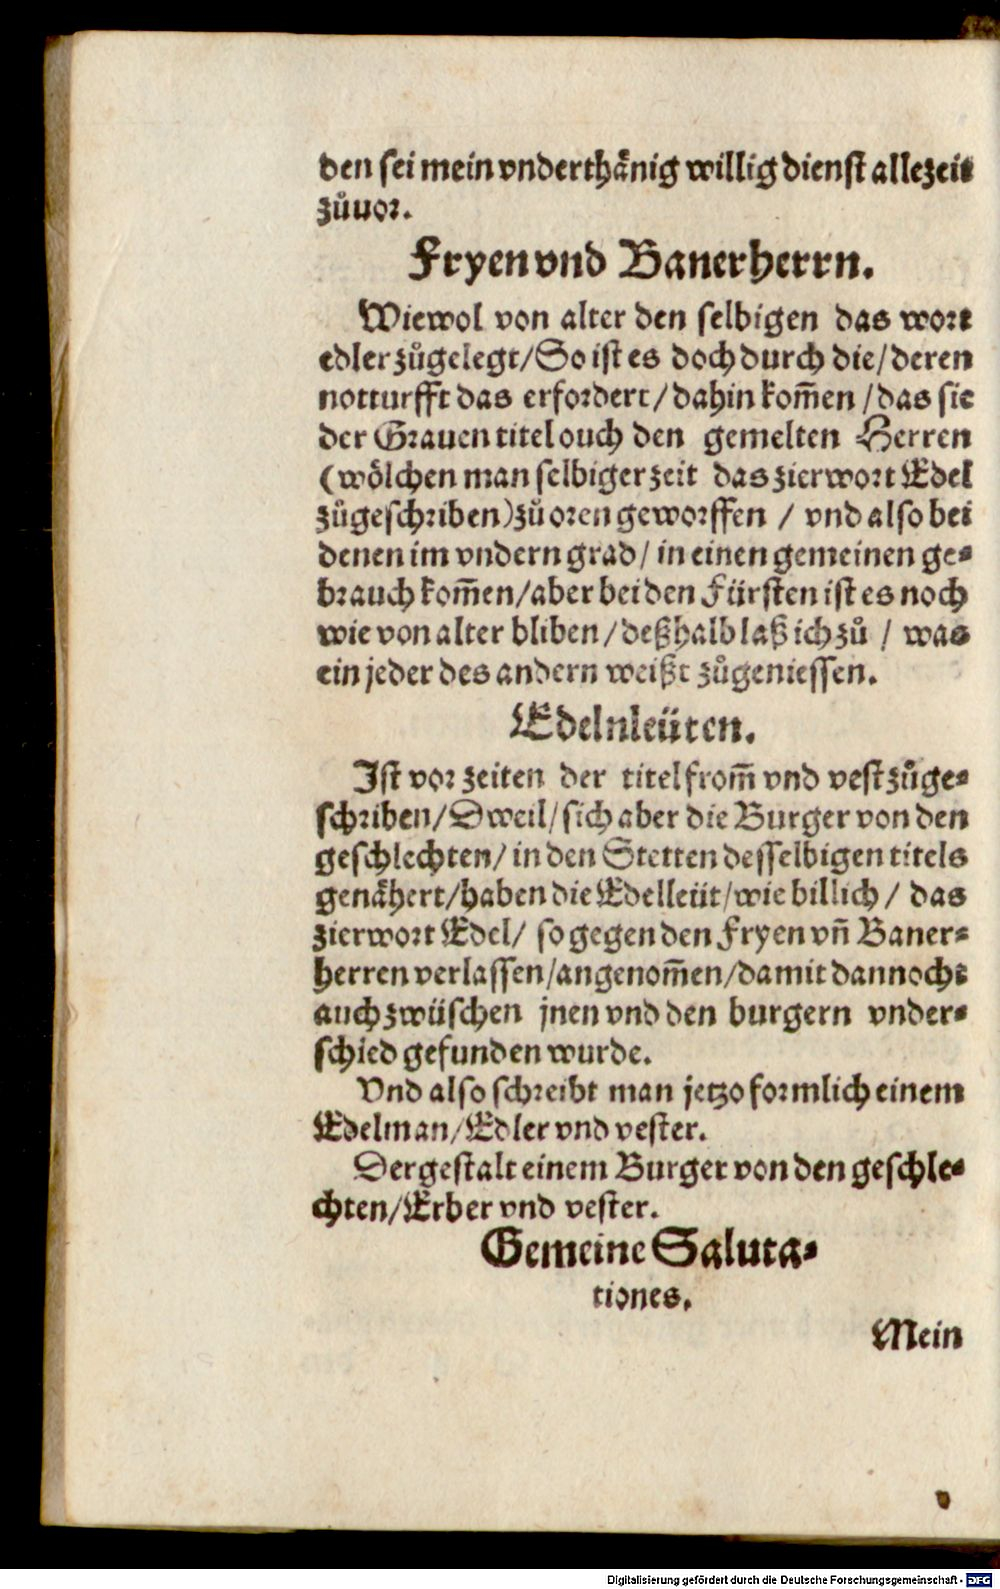 den sei mein vnderthånig willig dienst allezeit
zůuor.
Fryen vnd Banerherrn.
Wiewol von alter den selbigen das wort
edler zůgelegt/So ist es doch durch die/deren
notturfft das erfordert/dahin kom̄en/das sie
der Grauen titel ouch den gemelten Herren
(wölchen man selbiger zeit das zierwort Edel
zůgeschriben)zů oren geworffen / vnd also bei
denen im vndern grad/ in einen gemeinen ge⸗
brauch kom̄en/aber bei den Fürsten ist es noch
wie von alter bliben/deßhalb laß ich zů / was
ein jeder des andern weißt zůgeniessen.
Edelnleüten.
Ist vor zeiten der titel from̄ vnd vest zůge⸗
schriben/Dweil/sich aber die Burger von den
geschlechten/in den Stetten desselbigen titels
genåhert/haben die Edelleüt/wie billich/ das
zierwort Edel/ so gegen den Fryen vn̄ Baner⸗
herren verlassen/angenom̄en/damit dannocht
auch zwüschen jnen vnd den burgern vnder⸗
schied gefunden wurde.
Vnd also schreibt man jetzo formlich einem
Edelman/Edler vnd vester.
Dergestalt einem Burger von den geschle⸗
chten/Erber vnd vester.
Gemeine Saluta⸗
tiones.
Mein
Digitalisierung gefördert durch die Deutsche Forschungsgemeinschaft - DFG